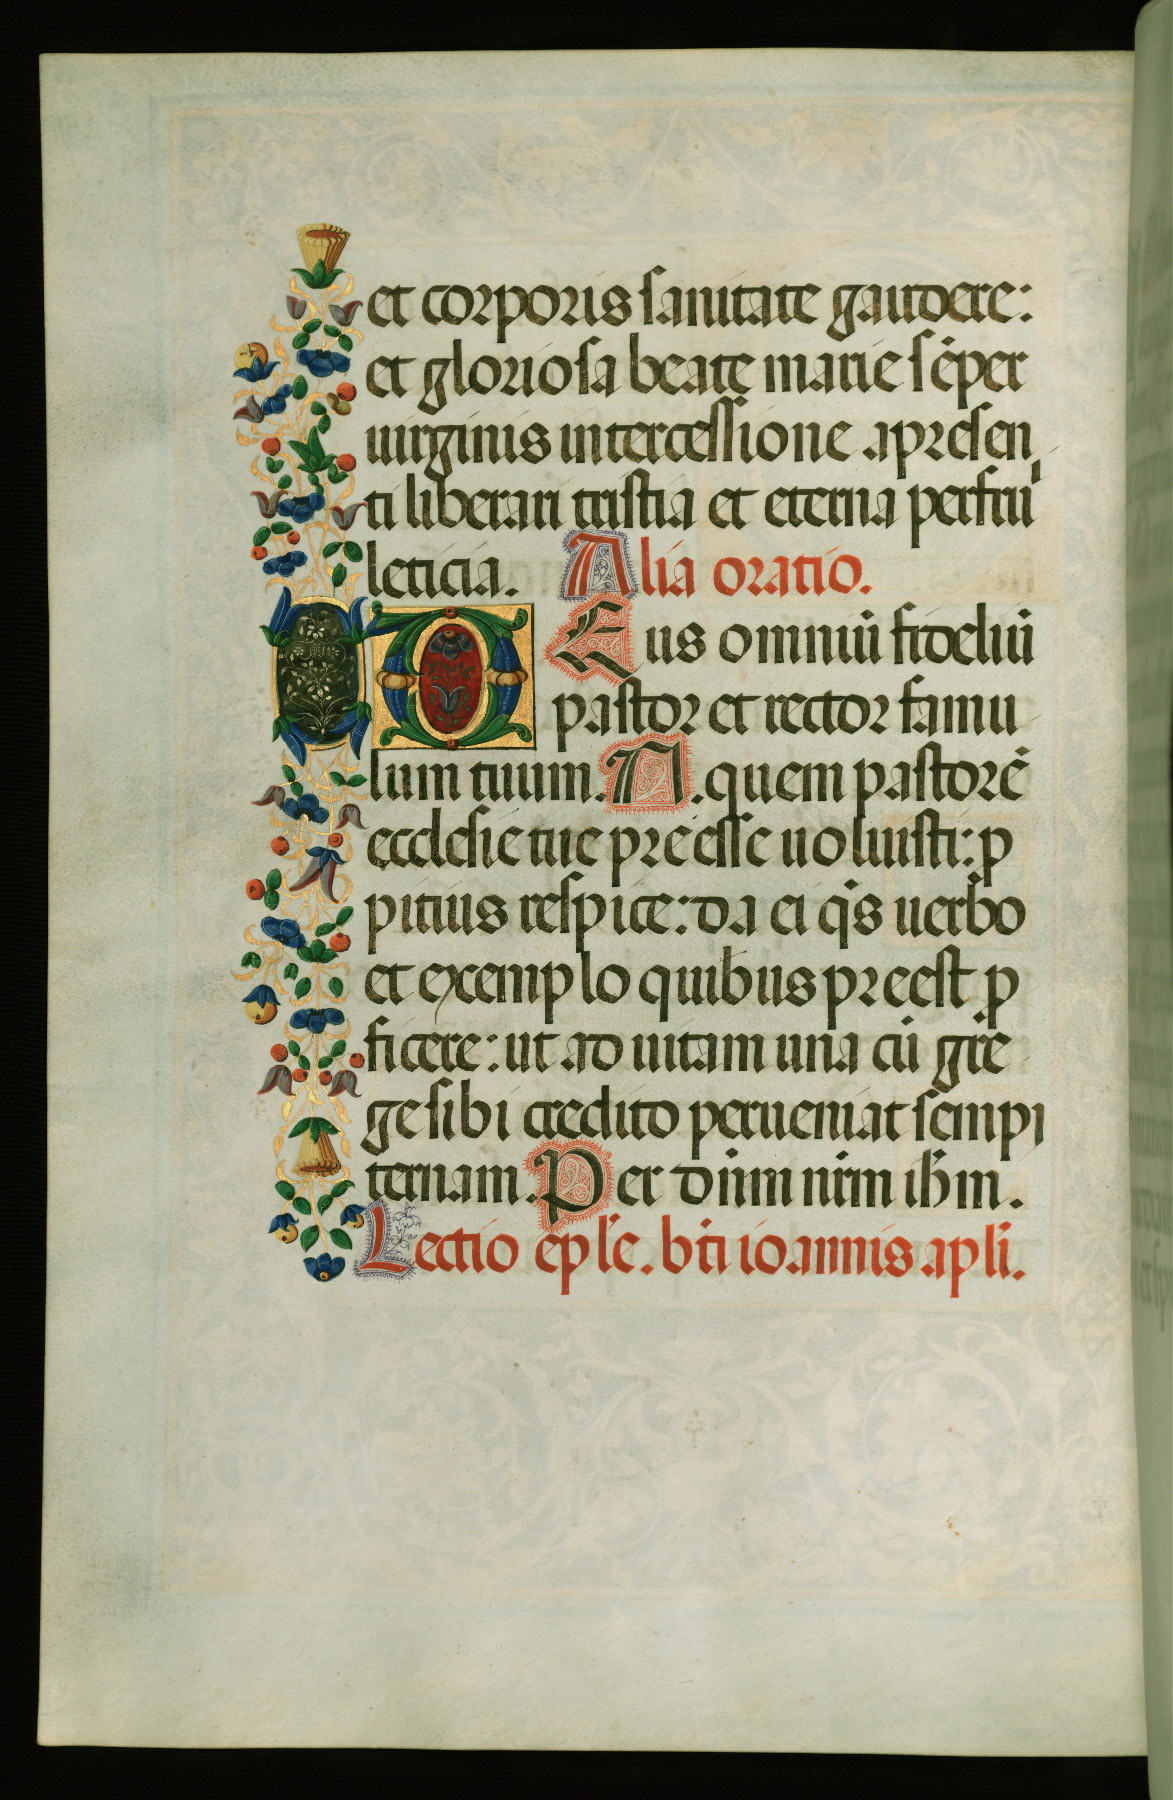 et corporis sanitate gaudere:
et gloriosa beate marie sēper
uirginis intercessione a presen
ti liberari tristia et eterna perfrui
leticia. Alia oratio.
DEus omniū fideliū
pastor et rector famu
lum tuum .N. quem pastorē
ecclesie tue preesse uoluisti: ꝓ
pitius respice: da ei q̄s uerbo
et exemplo quibus preest ꝓ
ficere: ut ad uitam una cū gre
ge sibi credito perueniat sempi
ternam. Per dn̄m nr̄m ih̄m.
Lectio ep̄le. bt̄i ioannis apl̄i.